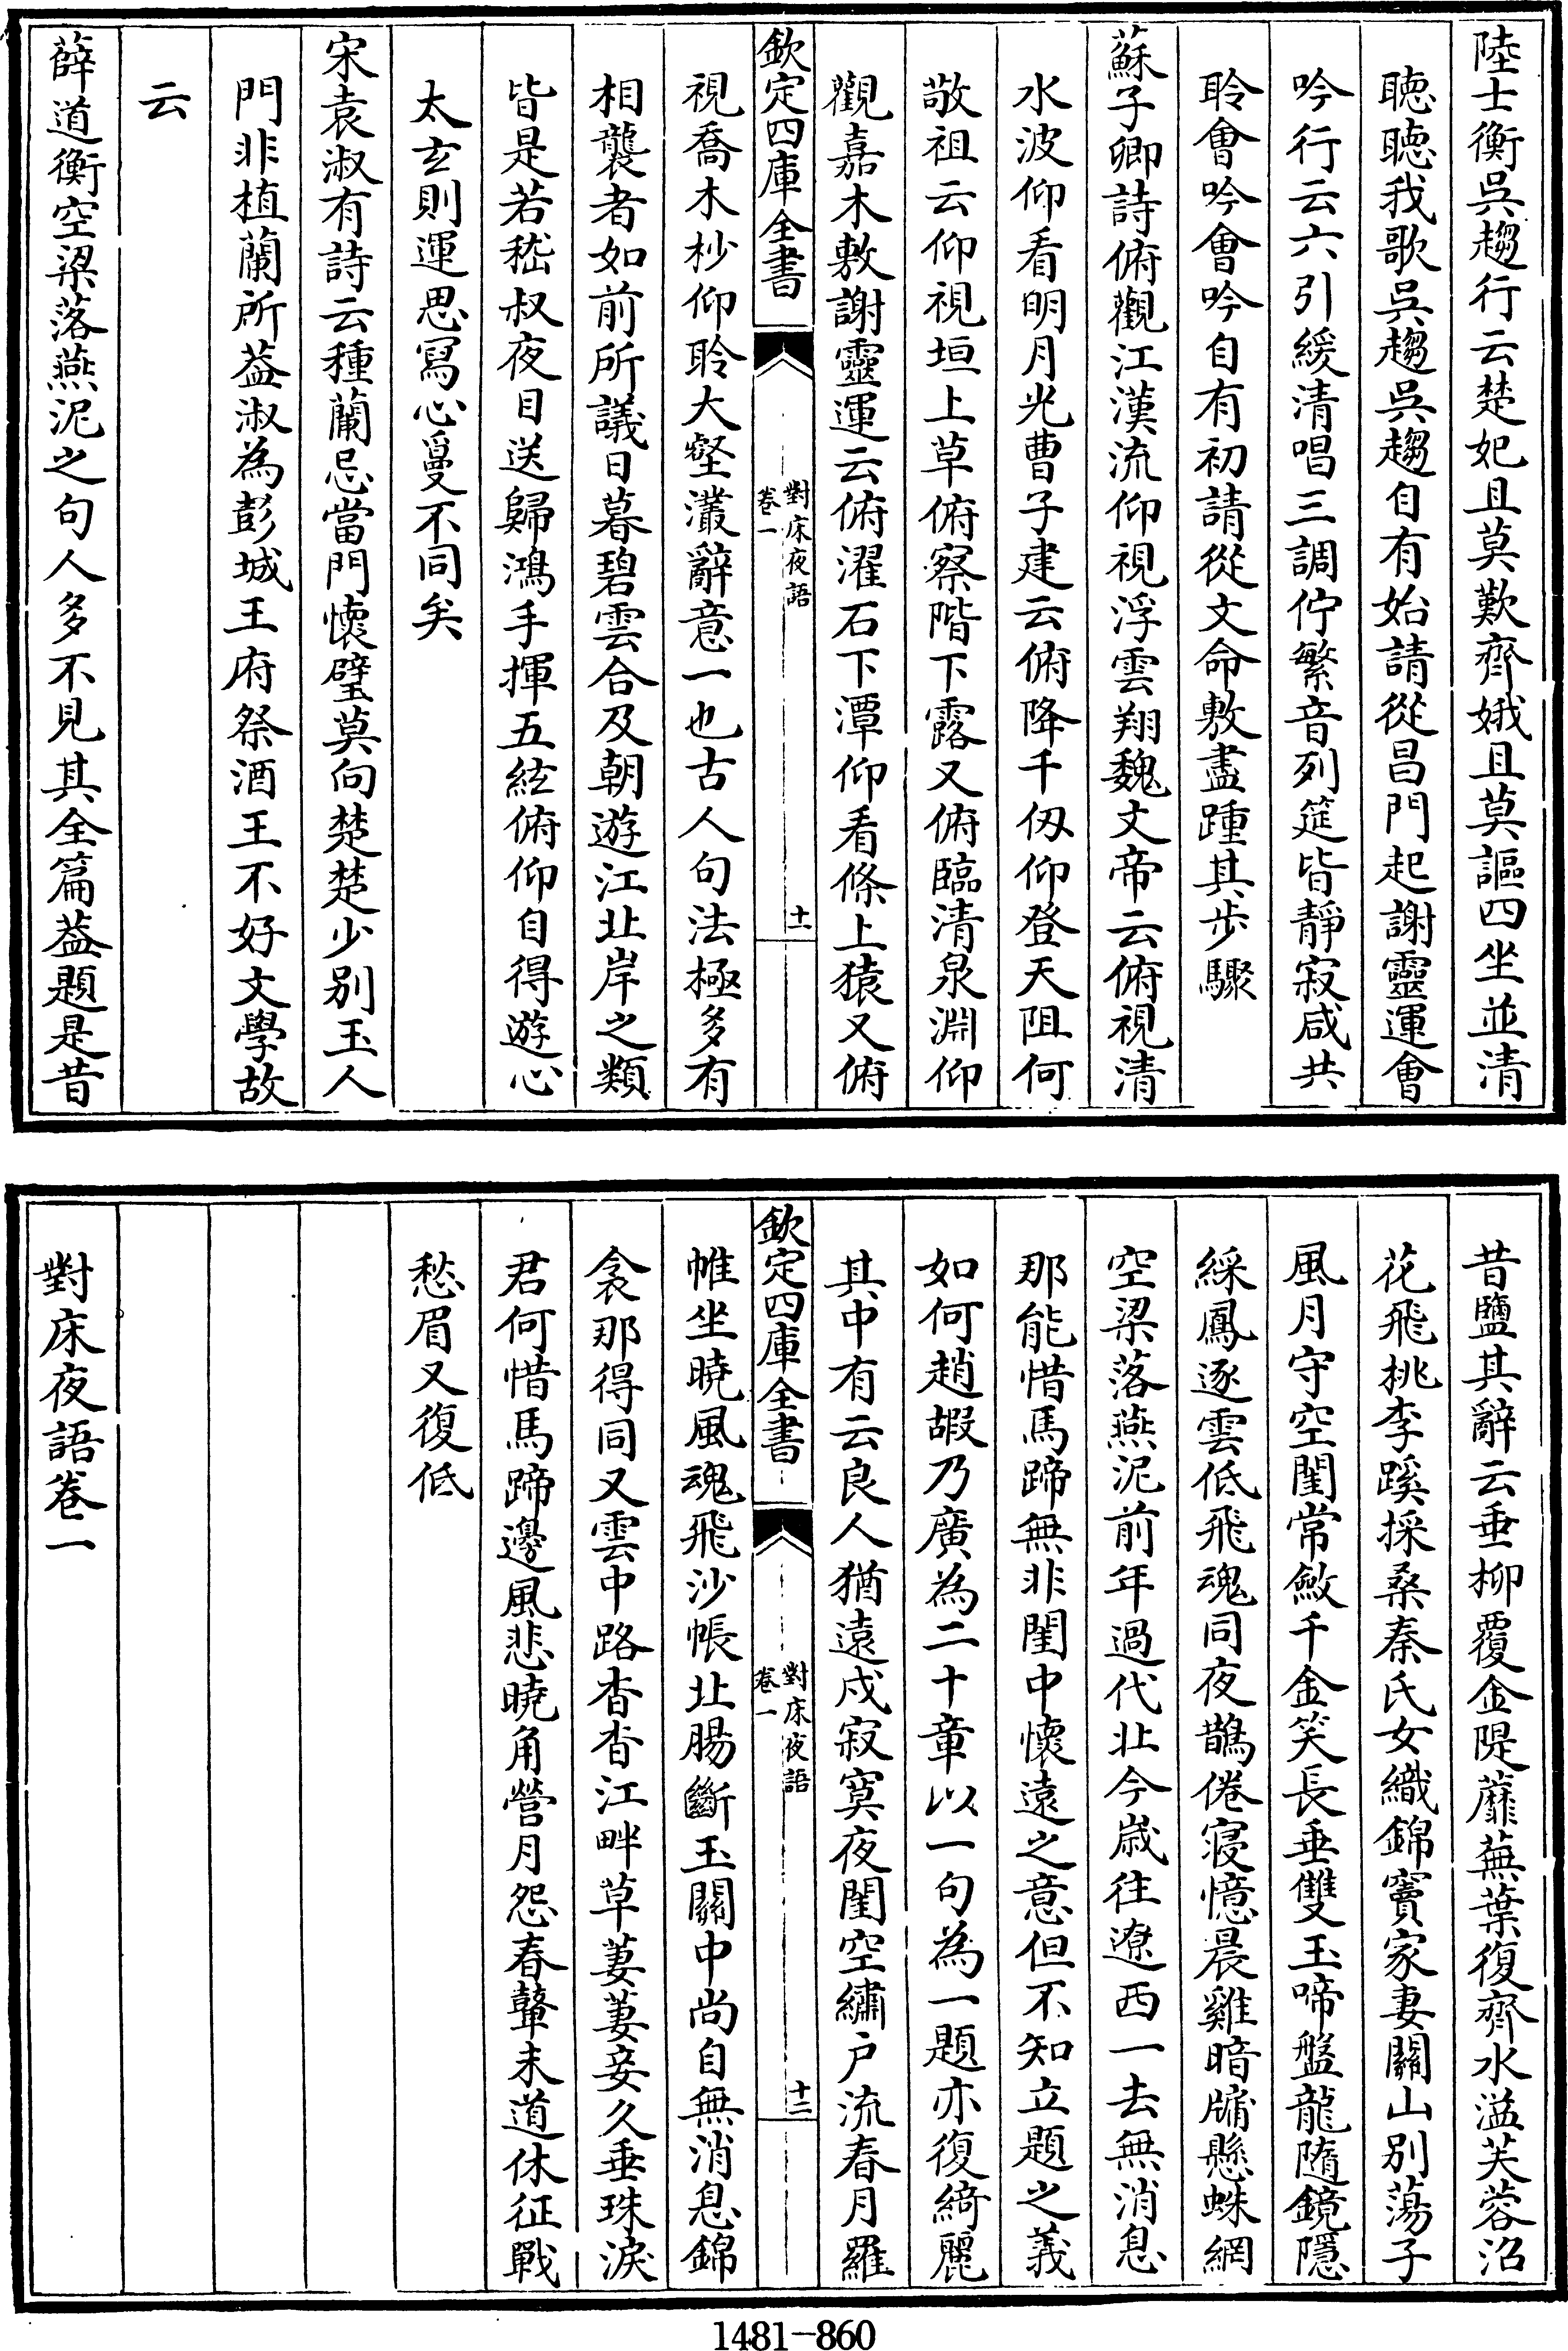 陸士衡吳趨行云楚妃且莫歎齊娥且莫謳四坐並清
聽聽我歌吳趨吳趨自有始請從昌門起謝靈運會
吟行云六引緩清唱三調佇繁音列筵皆靜寂咸共
聆會吟會吟自有初請從文命敷盡踵其步驟
蘇子卿詩俯觀江漢流仰視浮雲翔魏文帝云俯視清
水波仰看明月光曹子建云俯降千仞仰登天阻何
敬祖云仰視垣上草俯察階下露又俯臨清泉淵仰
觀嘉木敷謝靈運云俯濯石下潭仰看條上猿又俯
欽定四庫全書
對床夜語
卷一
十一
視喬木杪仰聆大壑灇辭意一也古人句法極多有
相襲者如前所議日暮碧雲合及朝遊江北岸之類
皆是若嵇叔夜目送歸鴻手揮五絃俯仰自得遊心
太玄則運思冩心敻不同矣
宋袁淑有詩云種蘭忌當門懷璧莫向楚楚少别玉人
門非植蘭所葢淑為彭城王府祭酒王不好文學故
云
薛道衡空梁落燕泥之句人多不見其全篇葢題是昔
昔鹽其辭云垂柳覆金隄蘼蕪葉復齊水溢芙蓉沼
花飛桃李蹊採桑秦氏女織錦竇家妻關山别蕩子
風月守空閨常斂千金笑長垂雙玉啼盤龍隨鏡隱
綵鳳逐雲低飛魂同夜鵲倦寝憶晨雞暗牖懸蛛網
空梁落燕泥前年過代北今嵗往遼西一去無消息
那能惜馬蹄無非閨中懷遠之意但不知立題之義
如何趙嘏乃廣為二十章以一句為一題亦復綺麗
其中有云良人猶遠戍寂寞夜閨空繡户流春月羅
欽定四庫全書
對床夜語
卷一
十二
帷坐曉風魂飛沙帳北腸斷玉關中尚自無消息錦
衾那得同又雲中路杳杳江畔草萋萋妾久垂珠淚
君何惜馬蹄邊風悲曉角營月怨春鼙未道休征戰
愁眉又復低
對床夜語卷一
1481-860